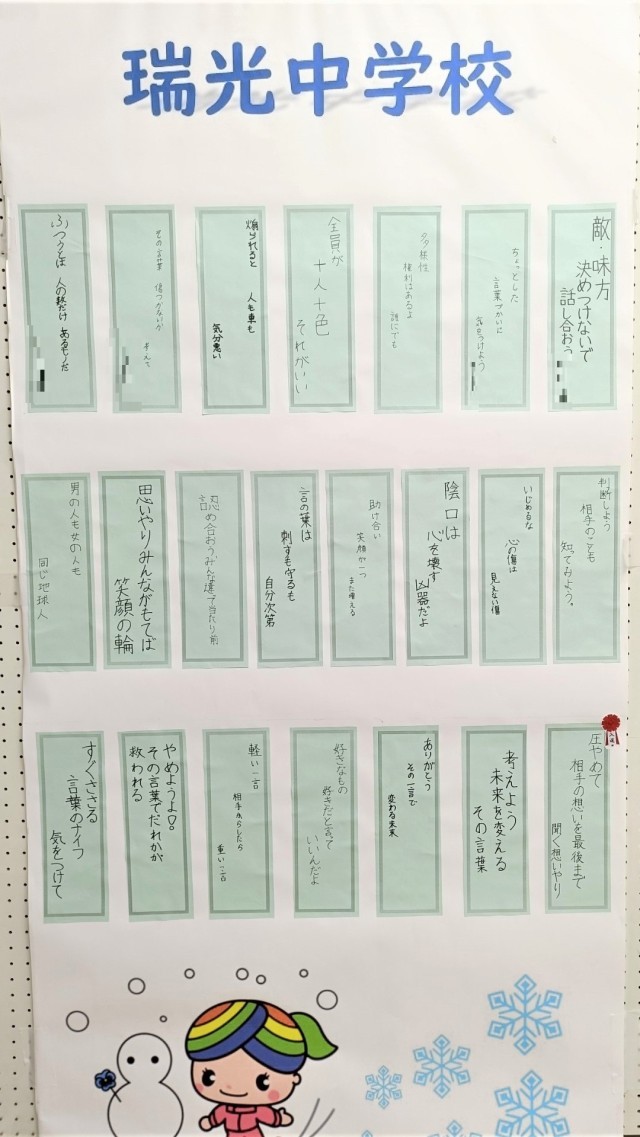 瑞光中学校
敵・味方
決めつけないで
話し合おう
ちょっとした
言葉づかいに
気をつけよう
多様性
権利はあるよ
誰にでも
全員が
十人十色
それがいい
煽られると
人も車も
気分悪い
その言葉
傷つかないか
考えて
ふつうとは
人の数だけ
あるものだ
判断しよう
相手のことも
知てみよう。
いじめるな
心の傷は
見えない傷
陰口は
心を壊す
凶器だよ
助け合い
笑顔が一つ
また増える
言の葉は
刺すも守るも
自分次第
認め合おうみんな違って当たり前
思いやりみんながもてば
笑顔の輪
男の人も女の人も
同じ地球人
圧やめて
相手の想いを最後まで
聞く想いやり
考えよう
未来を変える
その言葉
ありがとう
その一言で
変わる未来
好きなもの
好きだと言って
いいんだよ
軽い一言
相手からしたら
重い一言
やめようよ♡。
その言葉でだれかが
救われる
すぐささる
言葉のナイフ
気をつけて